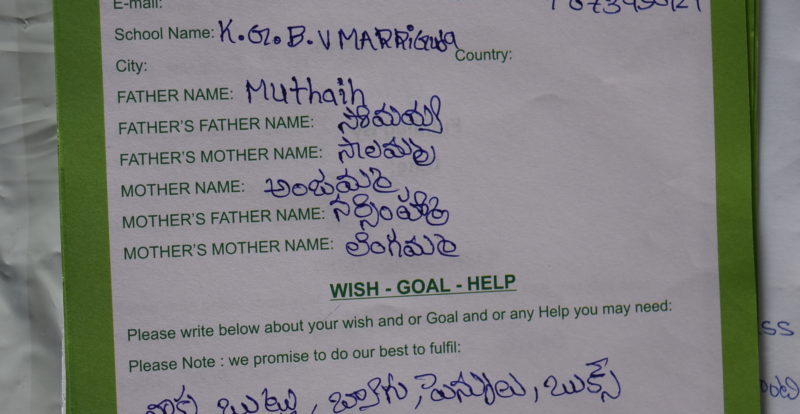 E-mail:
School Name: K.G.B.V MARRiGuda
City: Country:
FATHER NAME: Muthaih
FATHER'S FATHER NAME: సోమయ్య
FATHER'S MOTHER NAME: సాలమ్మ
MOTHER NAME: అంజమ్మ
MOTHER'S FATHER NAME: నర్సింహ
MOTHER'S MOTHER NAME: లింగమ్మ
WISH - GOAL - HELP
Please write below about your wish and or Goal and or any Help you may need:
Please Note : we promise to do our best to fulfil:
నాకు బుట్టు, బ్యాగు, పెన్నులు, బుక్స్